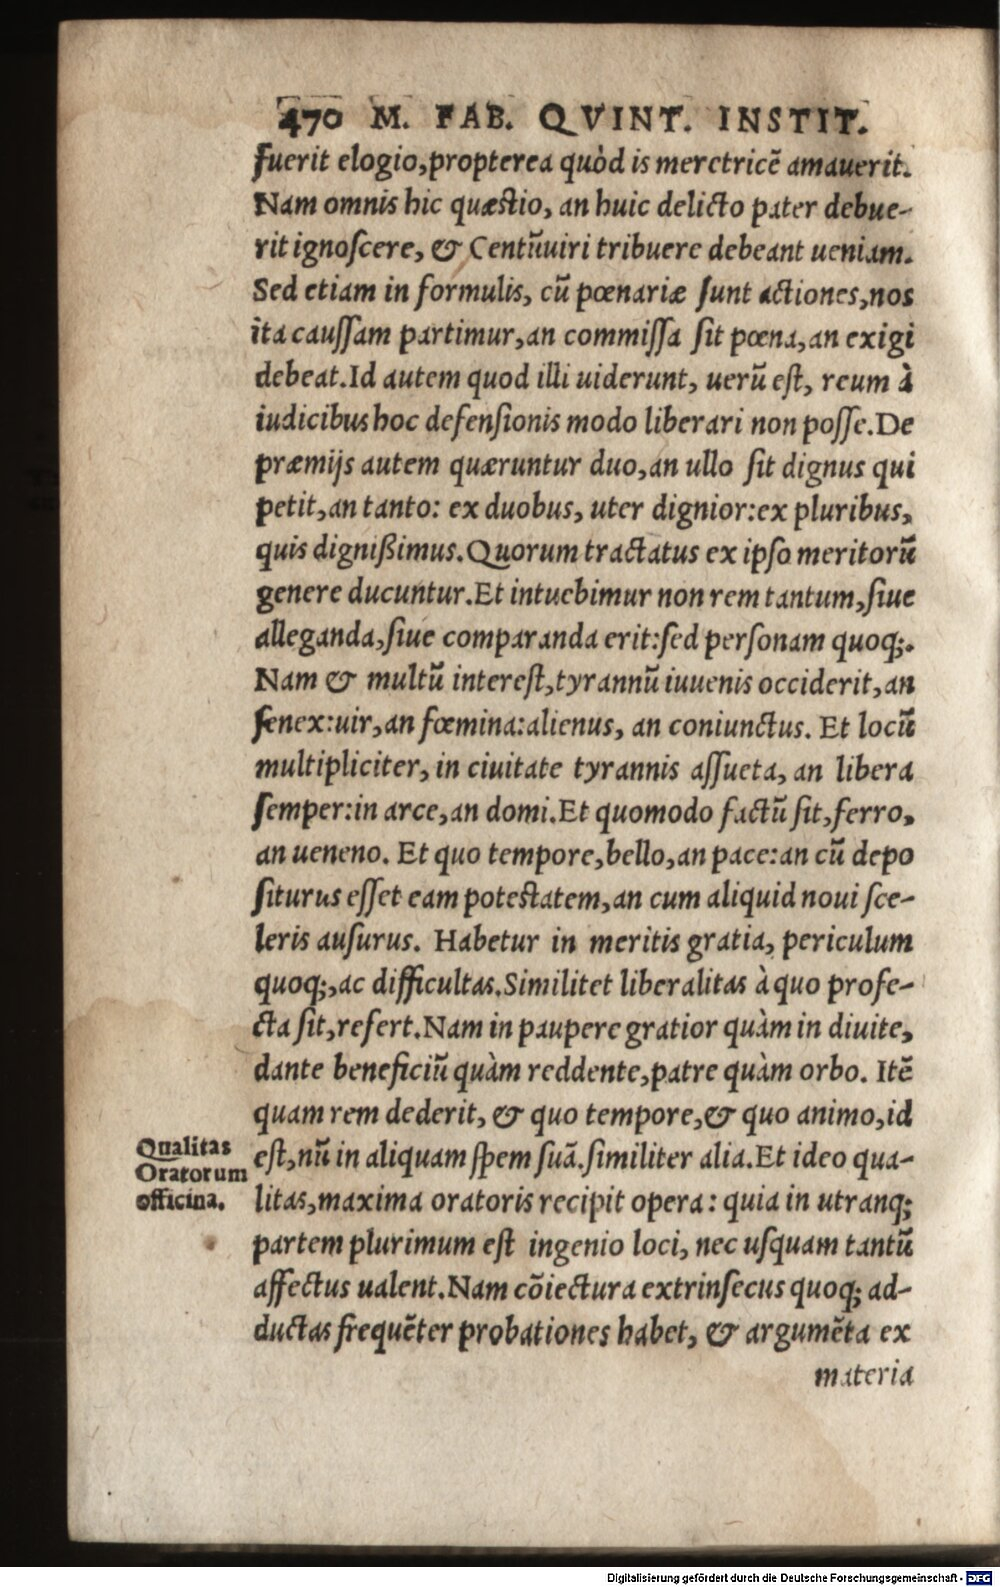 470 M. FAB. QVINT. INSTIT.
fuerit elogio, propterea quòd is meretricē amauerit.
Nam omnis hic quæstio, an huic delicto pater debue-
rit ignoscere, & Centūuiri tribuere debeant ueniam.
Sed etiam in formulis, cū pœnariæ sunt actiones, nos
ita caussam partimur, an commissa sit pœna, an exigi
debeat. Id autem quod illi uiderunt, uerū est, reum à
iudicibus hoc defensionis modo liberari non posse. De
præmijs autem quæruntur duo, an ullo sit dignus qui
petit, an tanto: ex duobus, uter dignior: ex pluribus,
quis dignißimus. Quorum tractatus ex ipso meritorū
genere ducuntur. Et intuebimur non rem tantum, siue
alleganda, siue comparanda erit: sed personam quoq;.
Nam & multū interest, tyrannū iuuenis occiderit, an
senex: uir, an fœmina: alienus, an coniunctus. Et locū
multipliciter, in ciuitate tyrannis assueta, an libera
semper: in arce, an domi. Et quomodo factū sit, ferro,
an ueneno. Et quo tempore, bello, an pace: an cū depo
siturus esset eam potestatem, an cum aliquid noui sce-
leris ausurus. Habetur in meritis gratia, periculum
quoq;, ac difficultas. Similitet liberalitas à quo profe-
cta sit, refert. Nam in paupere gratior quàm in diuite,
dante beneficiū quàm reddente, patre quàm orbo. Itē
quam rem dederit, & quo tempore, & quo animo, id
est, nū in aliquam spem suā. similiter alia. Et ideo qua-
litas, maxima oratoris recipit opera: quia in utranq;
partem plurimum est ingenio loci, nec usquam tantū
affectus ualent. Nam cōiectura extrinsecus quoq; ad-
ductas frequēter probationes habet, & argumēta ex
materia
Qualitas
Oratorum
officina.
Digitalisierung gefördert durch die Deutsche Forschungsgemeinschaft - DFG